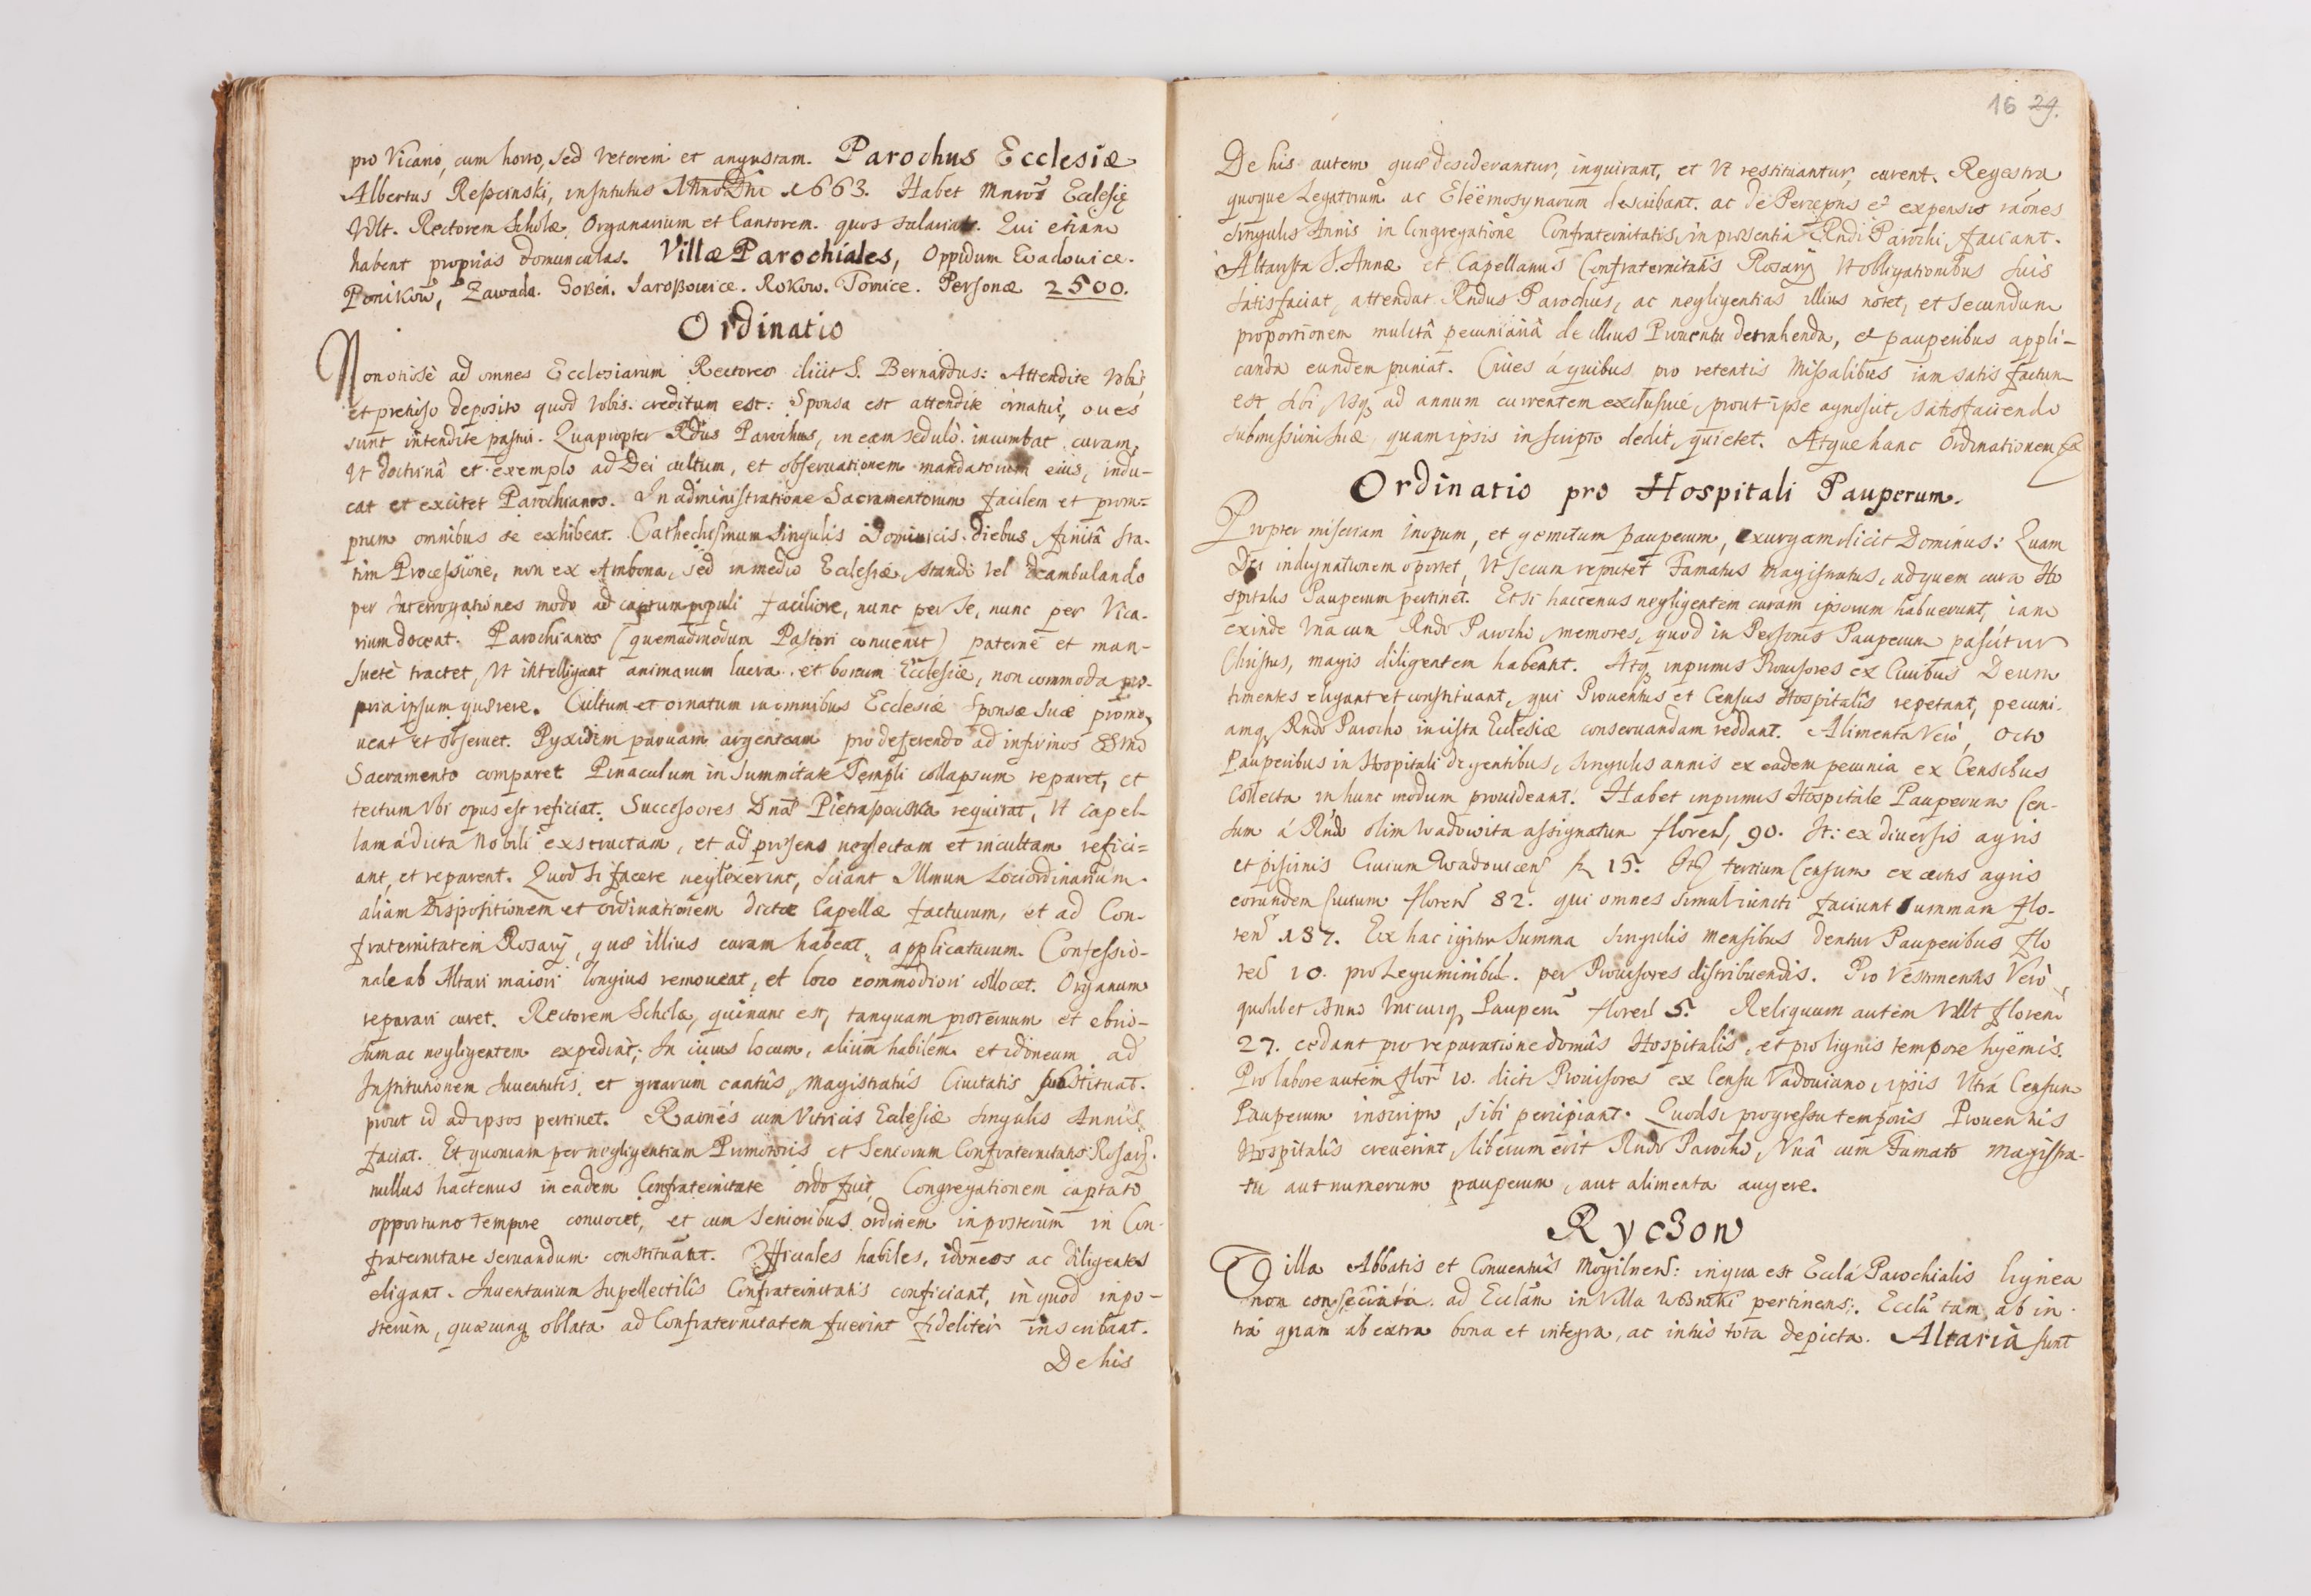 pro Vicario, cum horto, sed veterem et angustam. Parochus Ecclesiæ
Albertus institutus Anno Dni 1663. Habet Ecclesię
Vdlt. Rectorem Scholæ, Organarium et Cantorem. quos salariat. Qui etiam
habent proprias domunculas. Villæ Parochiales, Oppidum Wadowice.
Ponikow, Zawada. Goßen. Jaroßowice. Rokow. Tomice. Personæ 2500.
Ordinatio
Non otiosè ad omnes Ecclesiarum Rectores dicit S. Bernardus: Attendite vobis
et pretioso deposito quod vobis creditum est: Sponsa est attendite ornatui, oues
sunt intendite pastui. Quapropter Rdus Parochus, in eam sedulò incumbat curam,
vt doctrinâ et exemplo ad Dei cultum, et obseruationem mandatorum eius, indu-
cat et excitet Parochianos. In administratione Sacramentorum facilem et prom-
ptum omnibus se exhibeat. Cathechismum singulis Dominicis diebus, finitâ sta-
tim Processione, non ex Ambona, sed in medio Ecclesiæ, stando vel deambulando
per Interrogationes modo ad captum populi faciliore, nunc per se, nunc per Vica-
rium doceat. Parochianos (quemadmodum Pastori conuenit) paternè et man-
suetè tractet, vt intelligant animarum lucra et bonum Ecclesiæ, non commoda pro-
pria ipsum quærere. Cultum et ornatum in omnibus Ecclesiæ Sponsæ suæ promo-
ueat et obseruet. Pyxidim paruam argenteam pro deferendo ad infirmos SSmo
Sacramento comparet Pinaculum in summitate Templi collapsum reparet, et
tectum vbi opus est reficiat. Successores Dnæ requirat, vt capel-
lam á dicta Nobili exstructam, et ad præsens neglectam et incultam refici-
ant, et reparent. Quod si facere neglexerint, sciant Illmum Loci ordinarium
aliam Dispositionem et ordinationem dictæ Capellæ facturum, et ad Con-
fraternitatem Rosarÿ, quæ illius curam habeat, applicaturum. Confessio-
nale ab Altari maiori longius remoueat, et loco commodiori collocet. Organum
reparari curet. Rectorem Scholæ, qui nunc est, tanquam proteruum et ebrio-
sum ac negligentem expediat; In cuius locum, alium habilem et idoneum ad
Institutionem Iuuentutis, et gnarum cantûs Magistratus Ciuitatis substituat.
prout id ad ipsos pertinet. Raones cum Vitricis Ecclesiæ singulis Annis
faciat. Et quoniam per negligentiam Promotoris et Seniorum Confraternitatis Rosarÿ.
nullus hactenus in eadem Confraternitate ordo fuit, Congregationem captato
opportuno tempore conuocet, et cum Senioribus ordinem in posterùm in Con-
fraternitate seruandum constituant. Officiales habiles, idoneos ac diligentes
eligant. Inuentarium supellectilis Confraternitatis conficiant, in quod in po-
sterùm, quæcunq oblata ad Confraternitatem fuerint fideliter inscribant.
De his
16 29.
De his autem quæ desiderantur, inquirant, et vt restituantur, curent. Regestra
quoque Legatorum ac Eleëmosynarum describant. ac de Perceptis et expensis raones
singulis Annis in Congregatione Confraternitatis, in præsentia Rndi Parochi, faciant.
Altarista S. Annæ et Capellanus Confraternitatis Rosarÿ vt obligationibus suis
satisfaciat, attendat Rndus Parochus, ac negligentias illius notet, et secundum
proportionem mulctâ pecuniariâ de illius Prouentu detrahenda, et pauperibus appli-
canda eundem puniat. Ciues á quibus pro retentis Missalibus iam satis factum
est sibi vsq ad annum currentem exclusiuè, prout ipse agnoscit, satisfaciendo
submissioni suæ, quam ipsis in scripto dedit, quietet. Atque hanc Ordinationem
Ordinatio pro Hospitali Pauperum.
Propter miseriam inopum, et gemitum pauperum, exurgam dicit Dominus: Quam
Dei indignationem oportet, vt secum reputet Famatus Magistratus, ad quem cura Ho
spitalis Pauperum pertinet. Etsi hactenus negligentem curam ipsorum habuerunt, iam
exinde vna cum Rndo Parocho, memores, quod in Personis Pauperum pascitur
Christus, magis diligentem habeant. Atq inprimis Prouisores ex Ciuibus Deum
timentes eligant et constituant, qui Prouentus et Census Hospitalis repetant, pecuni-
amq Rndo Parocho in cista Ecclesiæ conseruandam reddant. Alimenta verò, octo
Pauperibus in Hospitali degentibus, singulis annis ex eadem pecunia ex Censibus
collecta in hunc modum prouideant. Habet inprimis Hospitale Pauperum Cen-
sum á Rndo olim Wadowita assignatum floren, 90. It: ex diuersis agris
et piscinis Ciuium Wadouicen fl 15. Itẽ tertium Censum ex certis agris
eorundem Ciuium floren 82. qui omnes simul iuncti faciunt summam flo-
ren 187. Ex hac igitur summa singulis mensibus dentur Pauperibus flo
ren 10. pro Leguminibus. per Prouisores distribuendis. Pro Vestimentis verò
quolibet Anno vnicuiq Pauperi floren 5. Reliquum autem vdlt floreni
27. cedant pro reparatione domûs Hospitalis, et pro lignis tempore hyemis.
Pro labore autem flor 10. dicti Prouisores ex Censu Vadouiano, ipsis vltrá Censum
Pauperum inscripto, sibi percipiant. Quodsi progressu temporis Prouentus
Hospitalis creuerint, liberum erit Rndo Parocho, vnâ cum Famato Magistra-
tu aut numerum pauperum, aut alimenta augere.
Ryczow
Villa Abbatis et Conuentûs Mogilnen: in qua est Eccla Parochialis lignea
non consecrata. ad Ecclam in Villa pertinens. Eccla tam ab in
tra quam ab extra bona et integra, ac intùs tota depicta. Altaria sunt